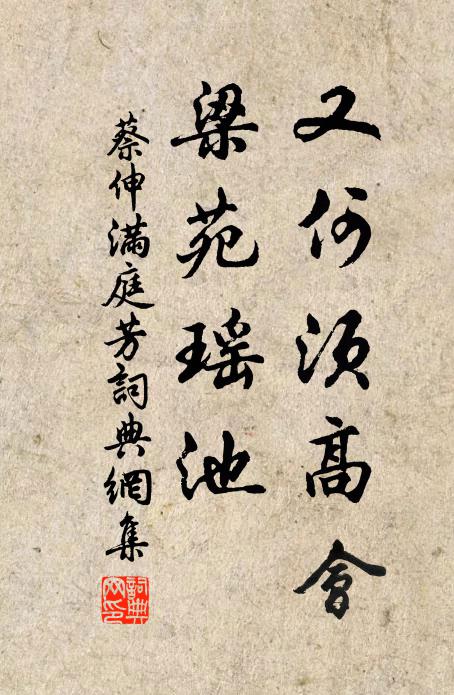 又何須高會
梁苑瑤池
蔡伸滿庭芳詞典網集
詞典網印